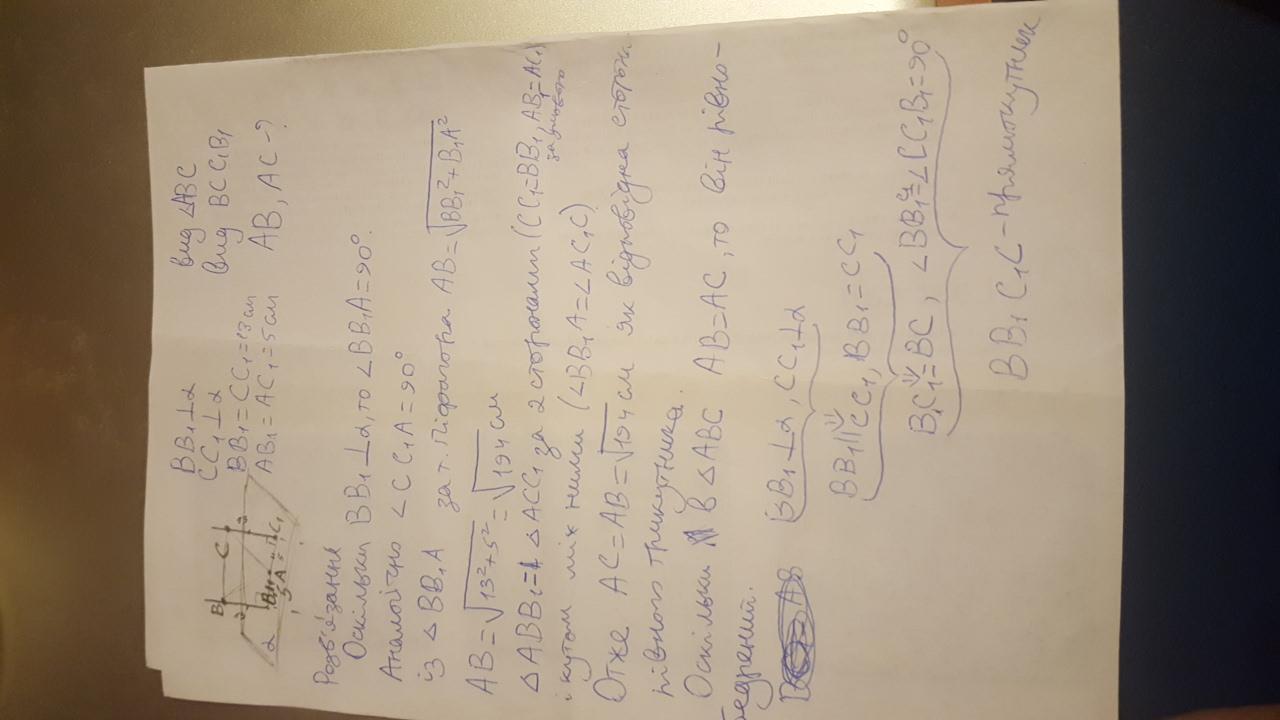 BB₁⊥α
CC₁⊥α
BB₁=CC₁=13см
AB₁=AC₁=5см
вид ∠ABC
вид BCC₁B₁
AB, AC-?
B
C
α
A
5
C₁
Розв'язання
Оскільки BB₁⊥α, то ∠BB₁A=90°.
Аналогічно ∠CC₁A=90°
із △BB₁A за т. Піфагора AB=√BB₁²+B₁A²
AB=√13²+5²=√194см
△ABB₁=△ACC₁ за 2 сторонами (CC₁=BB₁, AB₁=AC₁)
за умовою
і кутом між ними (∠BB₁A=∠AC₁C)
Отже AC=AB=√194см як відповідна сторона
рівного трикутника.
Оскільки в △ABC AB=AC, то він рівно-
бедрений.
BB₁⊥α, CC₁⊥α
BB₁||CC₁, BB₁=CC₁
B₁C₁=BC, ∠BB₁C₁=∠CC₁B₁=90°
BB₁C₁C-прямокутник